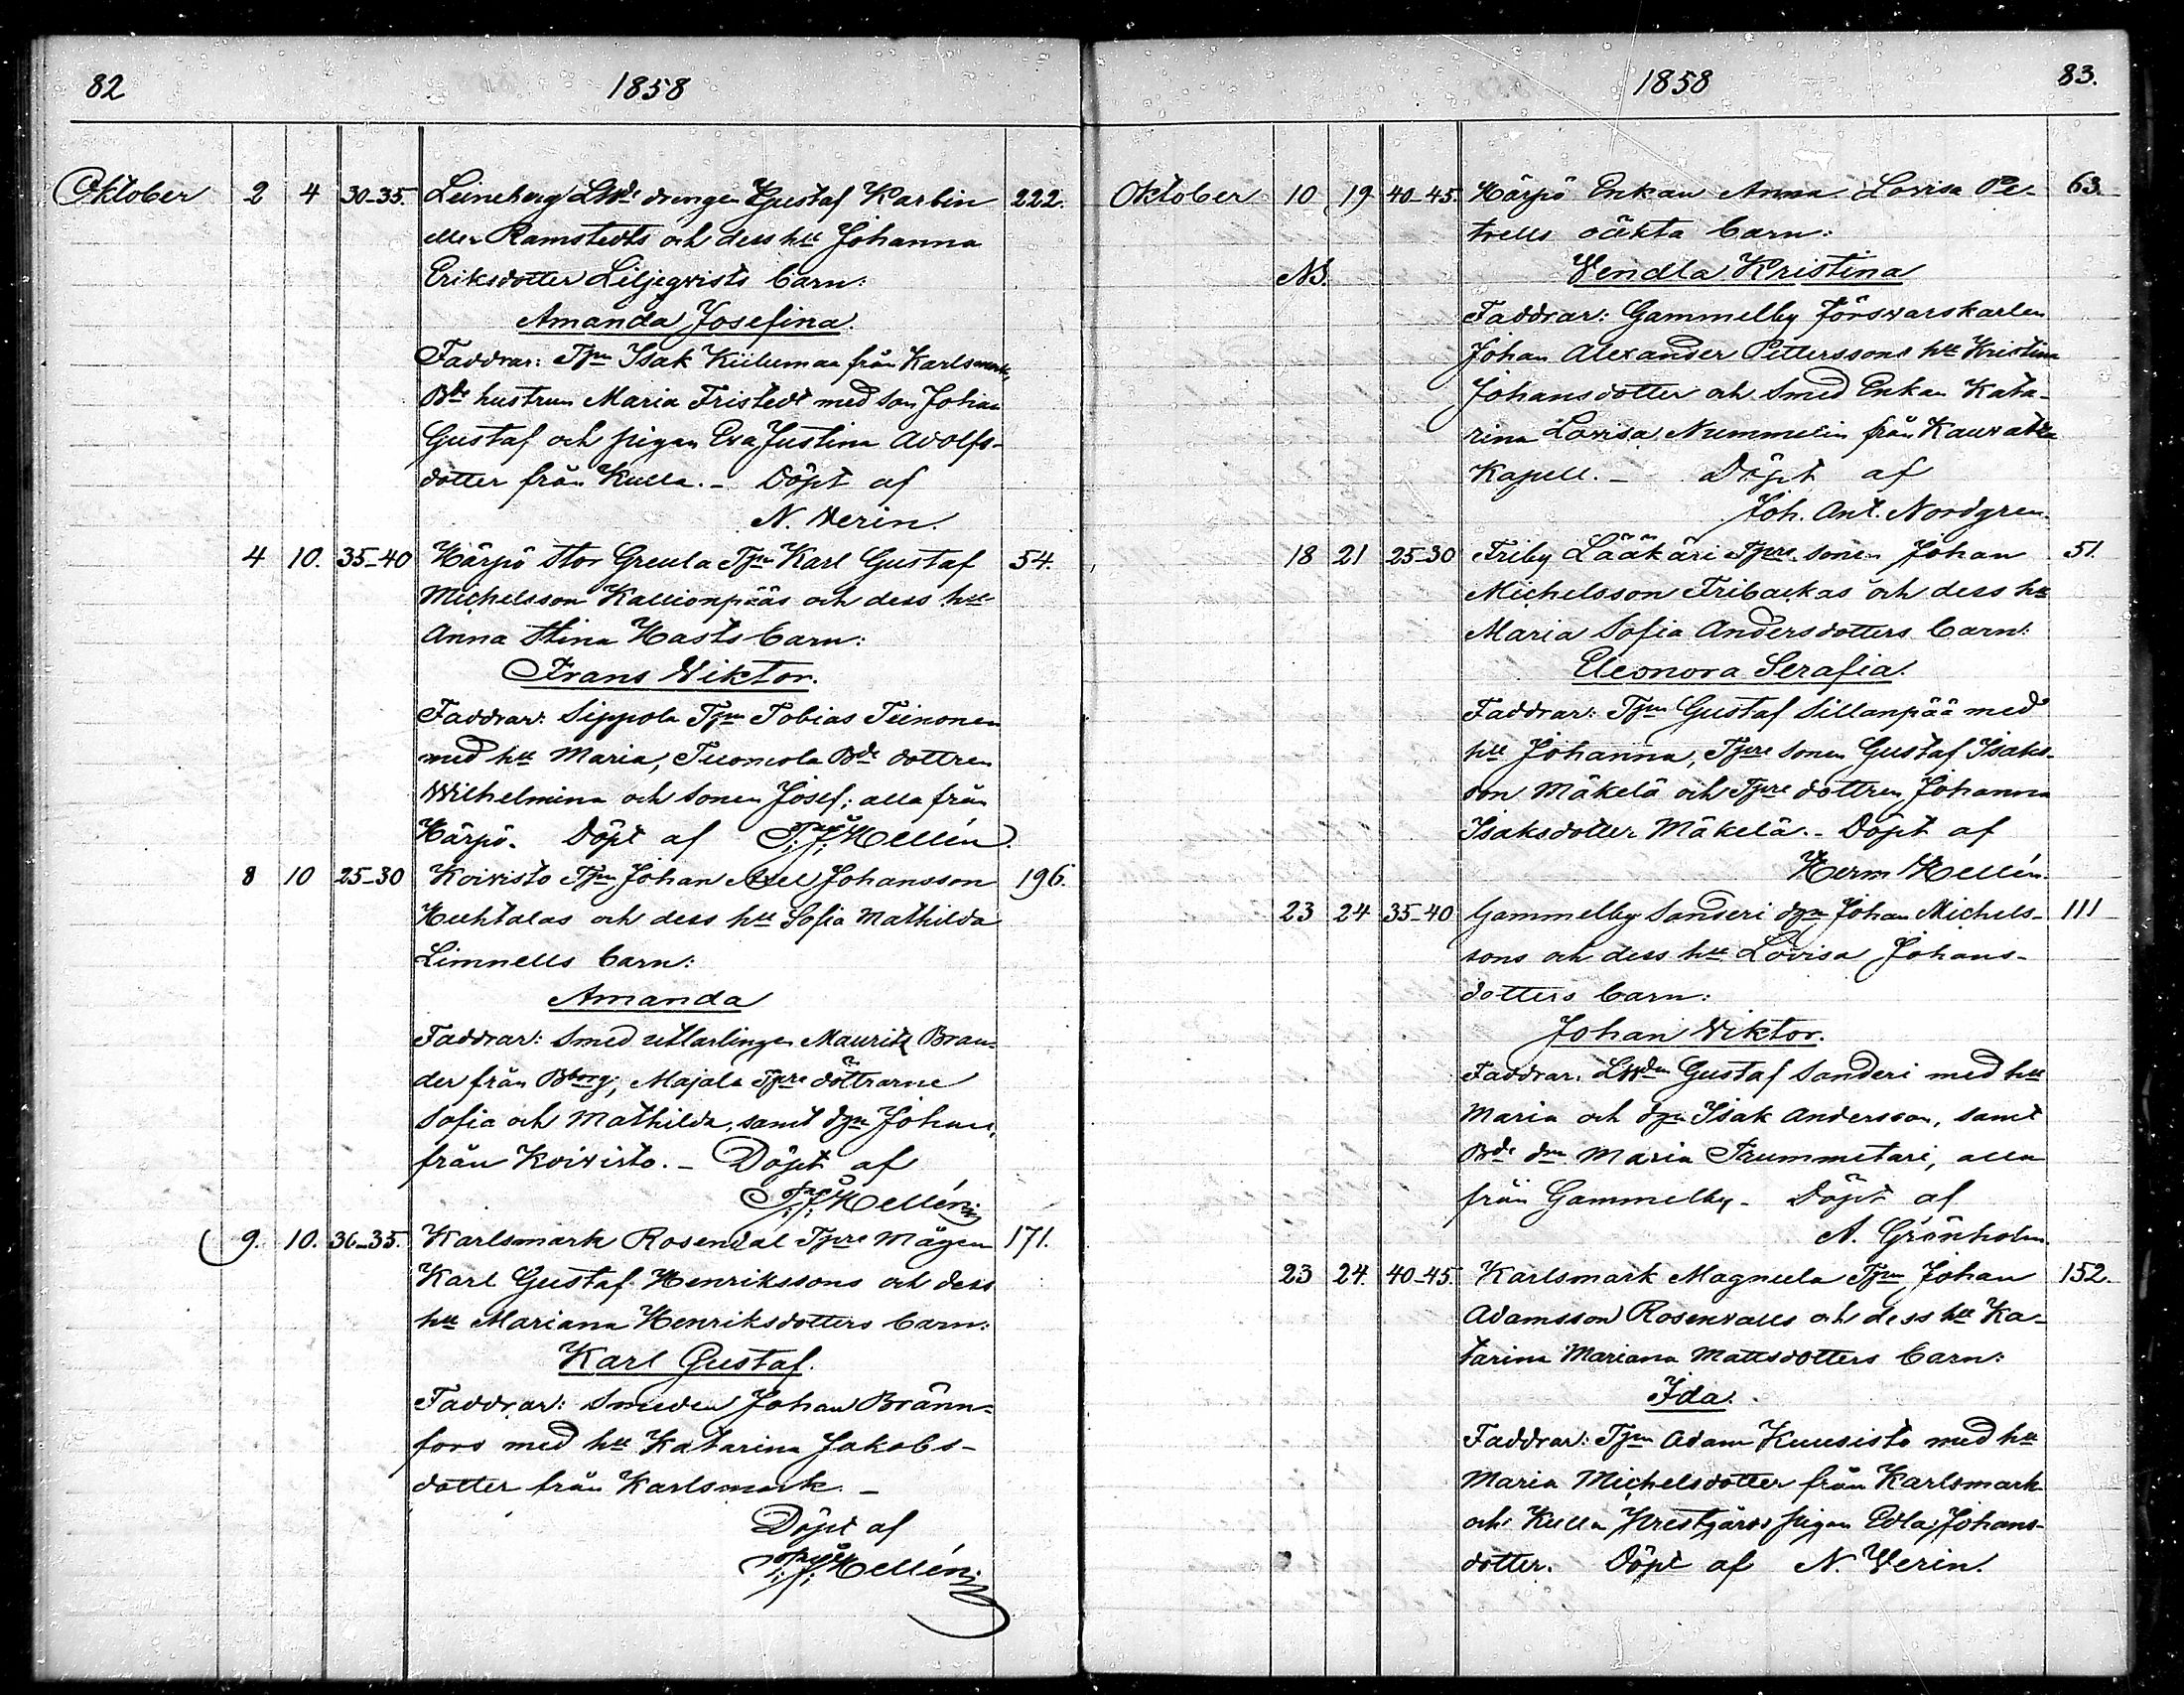 82
1858
Oktober 2 4 30-35. Leineberg Lbde drängen Gustaf Karlin 222.
eller Ramstedts och dess hu Johanna
Eriksdotter Liljeqvists barn:
Amanda Josefina.
Faddrar: Tpn Isak Kiiluman från Karlsmark,
Bde hustrun Maria Fristedt med son Johan
Gustaf och pigan Eva Justina Adolfs-
dotter från Kulla. - Döpt af
N. Werin.
4 10. 35-40 Härpö Stor Greula Tpn Karl Gustaf 54.
Michelsson Kallionpääs och dess hu
Anna Stina Hasts barn:
Frans Wiktor.
Faddrar: Sippola Tpn Tobias Teinonen
med hu Maria, Tuomola Bde dottren
Wilhelmina och sonen Josef; alla från
Härpö. Döpt af Hellén
8 10 25-30 Koivisto Tpn Johan Axel Johansson 196.
Huhtalas och dess hu Sofia Mathilda
Limnells barn:
Amanda
Faddrar: Smed utlärlingen Mauritz Bran-
der från Bborg, Majala Tpre döttrarne
Sofia och Mathilda, samt dgn Johan,
från Koivisto. - Döpt af
Hellén
9. 10. 30-35. Karlsmark Rosendal Tpre Mågen 171.
Karl Gustaf Henrikssons och dess
hu Mariana Henriksdotters barn:
Karl Gustaf.
Faddrar: Smeden Johan Bränn-
fors med hu Katarina Jakobs-
dotter från Karlsmark. -
Döpt af
Hellén
1858
83.
Oktober 10 19 40-45. Härpö Enkan Anna Lovisa Pe- 63.
trells oäkta barn:
NB. Vendla Kristina
Faddrar: Gammelby Försvarskarlen
Johan Alexander Petterssons hu Kristina
Johansdotter och Smed Enkan Kata-
rina Lovisa Nummelin från Kauvatsa
Kapell. - Döpt af
Joh. Ant. Nordgren.
18 21 25-30 Friby Lääkäri Tpre sonen Johan 51.
Michelsson Fribackas och dess hu
Maria Sofia Andersdotters barn:
Eleonora Serafia.
Faddrar: Tpn Gustaf Sillanpää med
hu Johanna, Tpre sonen Gustaf Isaks-
son Mäkelä och Tpre dottren Johanna
Isaksdotter Mäkelä. - Döpt af
Herm Hellén.
23 24 35-40 Gammelby Sanderi dgn Johan Michels- 111
sons och dess hu Lovisa Johans-
dotters barn:
Johan Wiktor.
Faddrar. Lbden Gustaf Sanderi med hu
Maria och dgn Isak Andersson, samt
Bde drn Maria Trummetari, alla
från Gammelby - Döpt af
A. Grönholm.
23 24. 40-45. Karlsmark Magnula Tpn Johan 152.
Adamsson Rosenvalls och dess hu Ka-
tarina Mariana Mattsdotters barn:
Ida.
Faddrar: Tpn Adam Kuusisto med hu
Maria Michelsdotter från Karlsmark
och Kulla Prestgårds pigan Edla Johans-
dotter. Döpt af N. Werin.